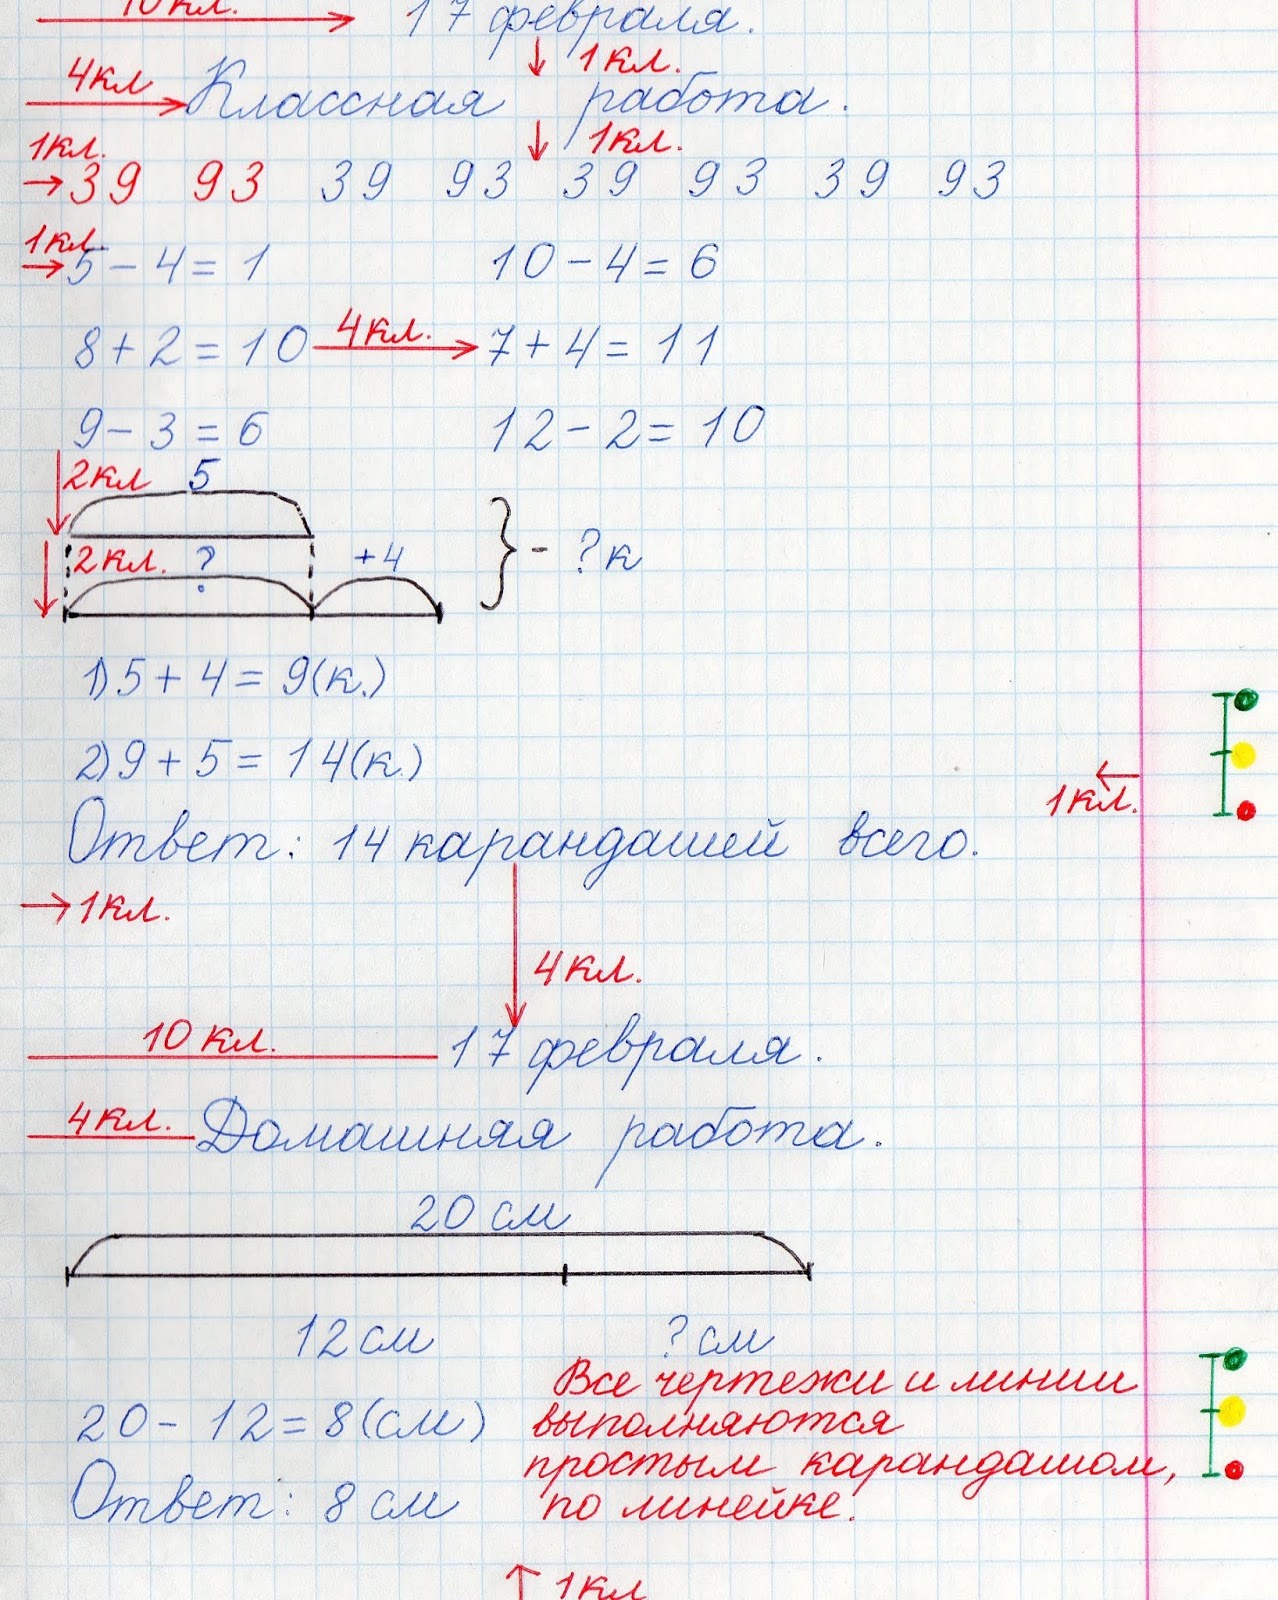 10 кл. 17 февраля.
1кл.
4кл Классная работа.
1кл. 1кл.
39 93 39 93 39 93 39 93
1кл
5 - 4 = 1 10 - 4 = 6
8 + 2 = 10 4кл. 7 + 4 = 11
9 - 3 = 6 12 - 2 = 10
2кл 5
2кл. ? +4 } - ?к
1) 5 + 4 = 9(к.)
2) 9 + 5 = 14(к.)
1кл.
Ответ: 14 карандашей всего.
1кл.
4кл.
10 кл. 17 февраля.
4кл. Домашняя работа.
20 см
12 см ? см
Все чертежи и линии
20 - 12 = 8(см) выполняются
простым карандашом,
Ответ: 8 см по линейке.
1кл